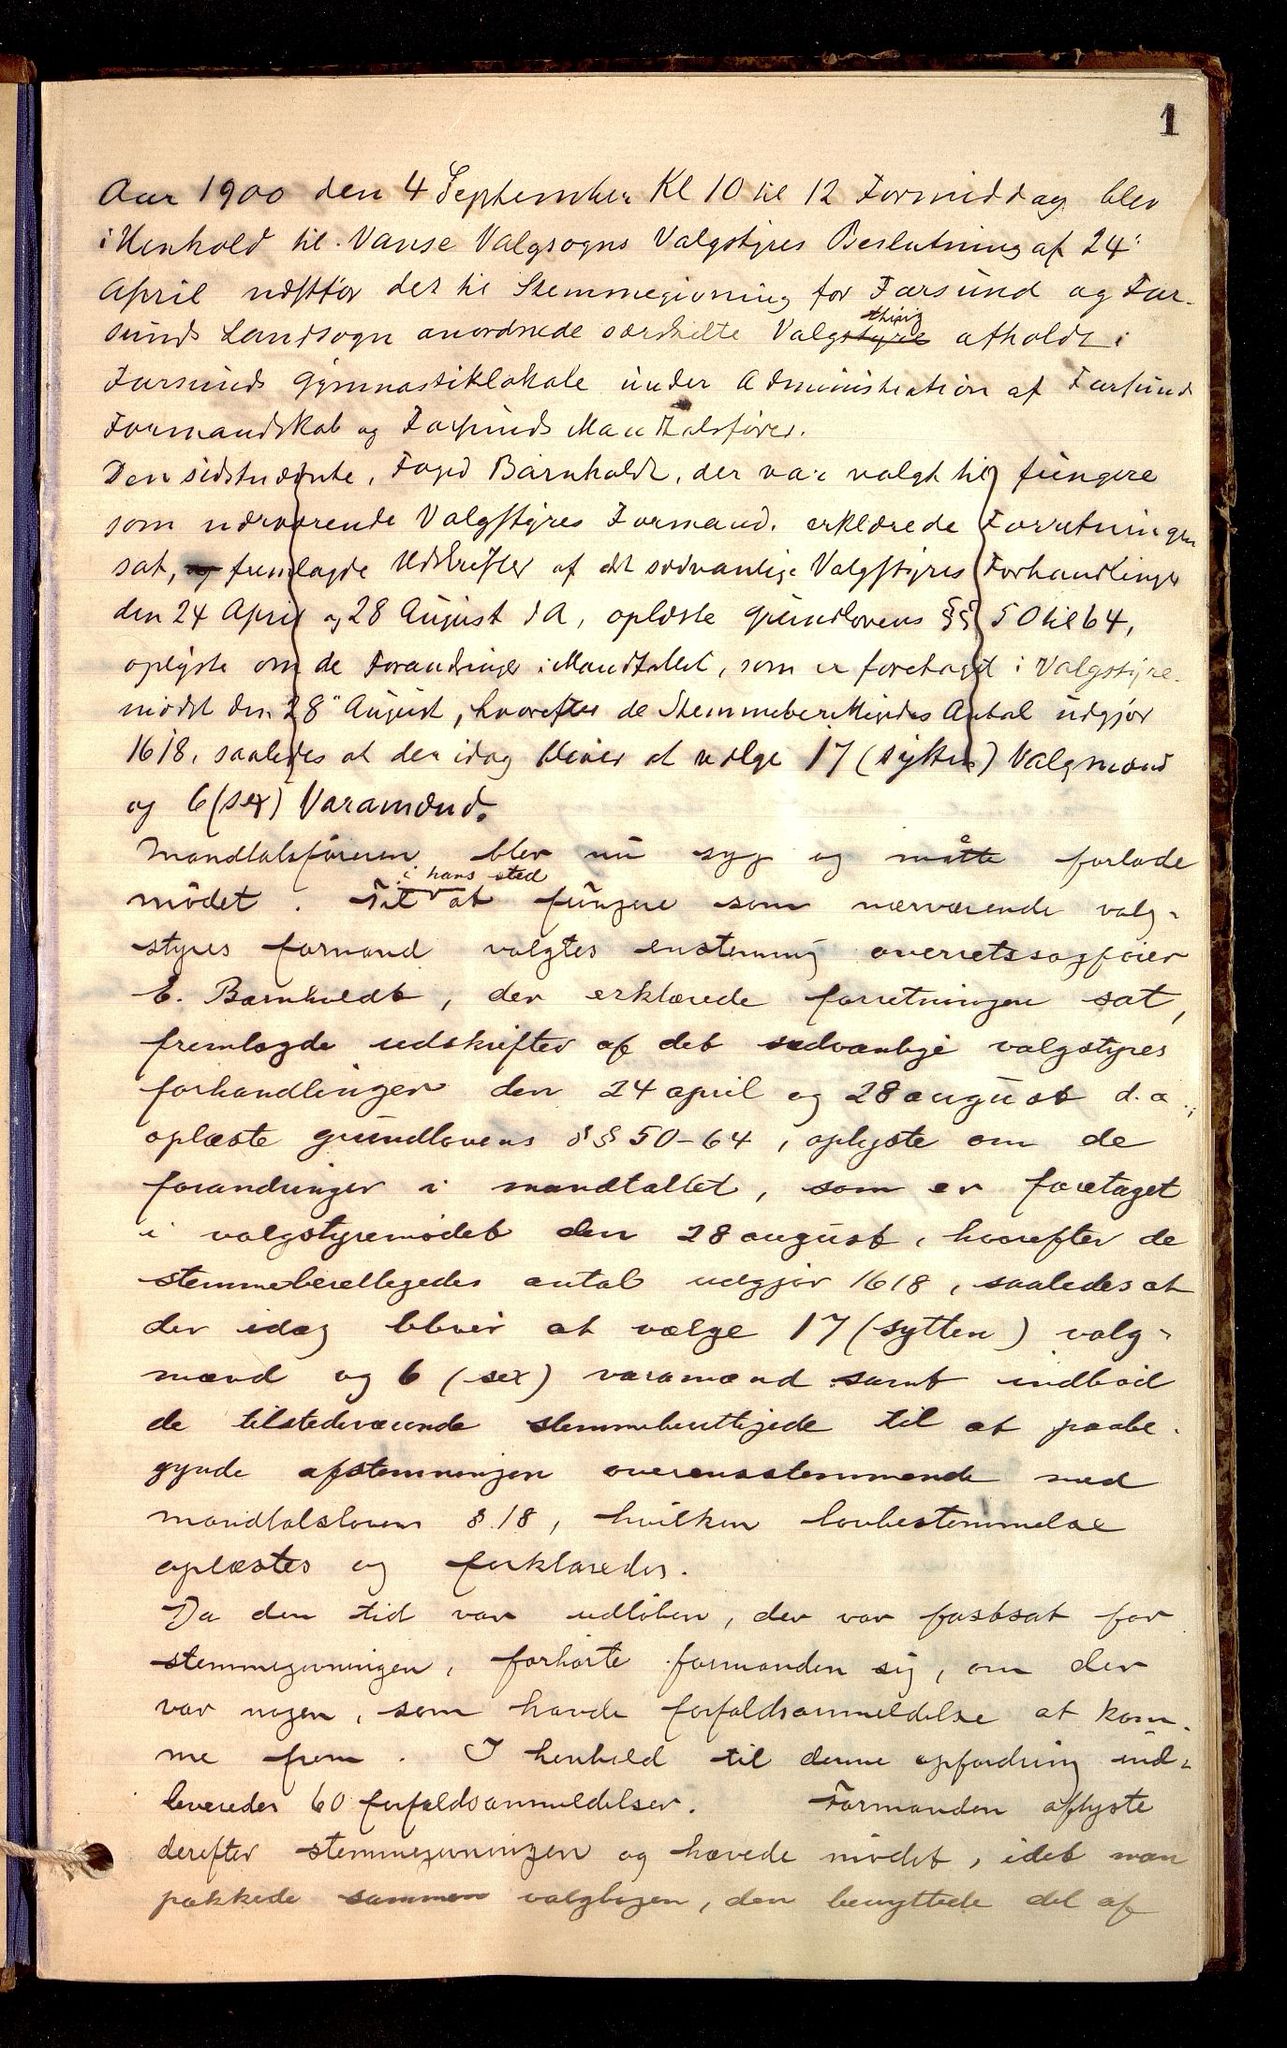 1
Aar 1900 den 4 September Kl 10 til 12 Formiddag blev
i Henhold til Vanse Valgsogns Valgstyres Beslutning af 24'
April næstfør det til Stemmegivning for Farsund og Far-
sunds Landsogn anordnede særskilte Valgstyre thing afholdt i
Farsunds Gymnastiklokale under Administration af Farsunds
Formandskab og Farsunds Mandtalsfører.
Den sidstnævnte, Foged Barnholdt, der var valgt til fungere
som nærværende Valgstyres Formand, erklærede Forretningen
sat, og fremlagde Udskrifter af det sædvanlige Valgstyres Forhandlinger
den 24 April og 28 August d A, oplæste Grundlovens §§ 50 til 64,
oplyste om de Forandringer i Mandtallet, som er foretaget i Valgstyre-
mødet den 28" August, hvorefter de Stemmeberettigedes Antal udgjør
1618, saaledes at der idag bliver at vælge 17 (sytten) Valgmænd
og 6 (sex) Varamænd.
Mandtalsføreren blev nu syg og måtte forlade
mødet. Til i hans sted at fungere som nærværende valg-
styres formand valgtes enstemmig overretssagfører
E. Barnholdt, der erklærede forretningen sat,
fremlagde udskrifter af det sædvanlige valgstyres
forhandlinger den 24 april og 28 august d. a.,
oplæste grundlovens §§ 50-64, oplyste om de
forandringer i mandtallet, som er foretaget
i valgstyremødet den 28 august, hvorefter de
stemmeberettigedes antal udgjør 1618, saaledes at
der idag bliver at vælge 17 (sytten) valg-
mænd og 6 (sex) varamænd samt indbød
de tilstedeværende stemmeberettigede til at paabe-
gynde afstemningen overensstemmende med
mandtalsloven § 18, hvilken lovbestemmelse
oplæstes og forklaredes.
Da den tid var udløben, der var fastsat for
stemmegivningen, forhørte formanden sig, om der
var nogen, som havde forfaldsanmeldelse at kom-
me frem. I henhold til denne opfordring ind-
leveredes 60 forfaldsanmeldelser. Formanden aflyste
derefter stemmegivningen og hævede mødet, idet man
pakkede sammen valgbogen, den benyttede del af